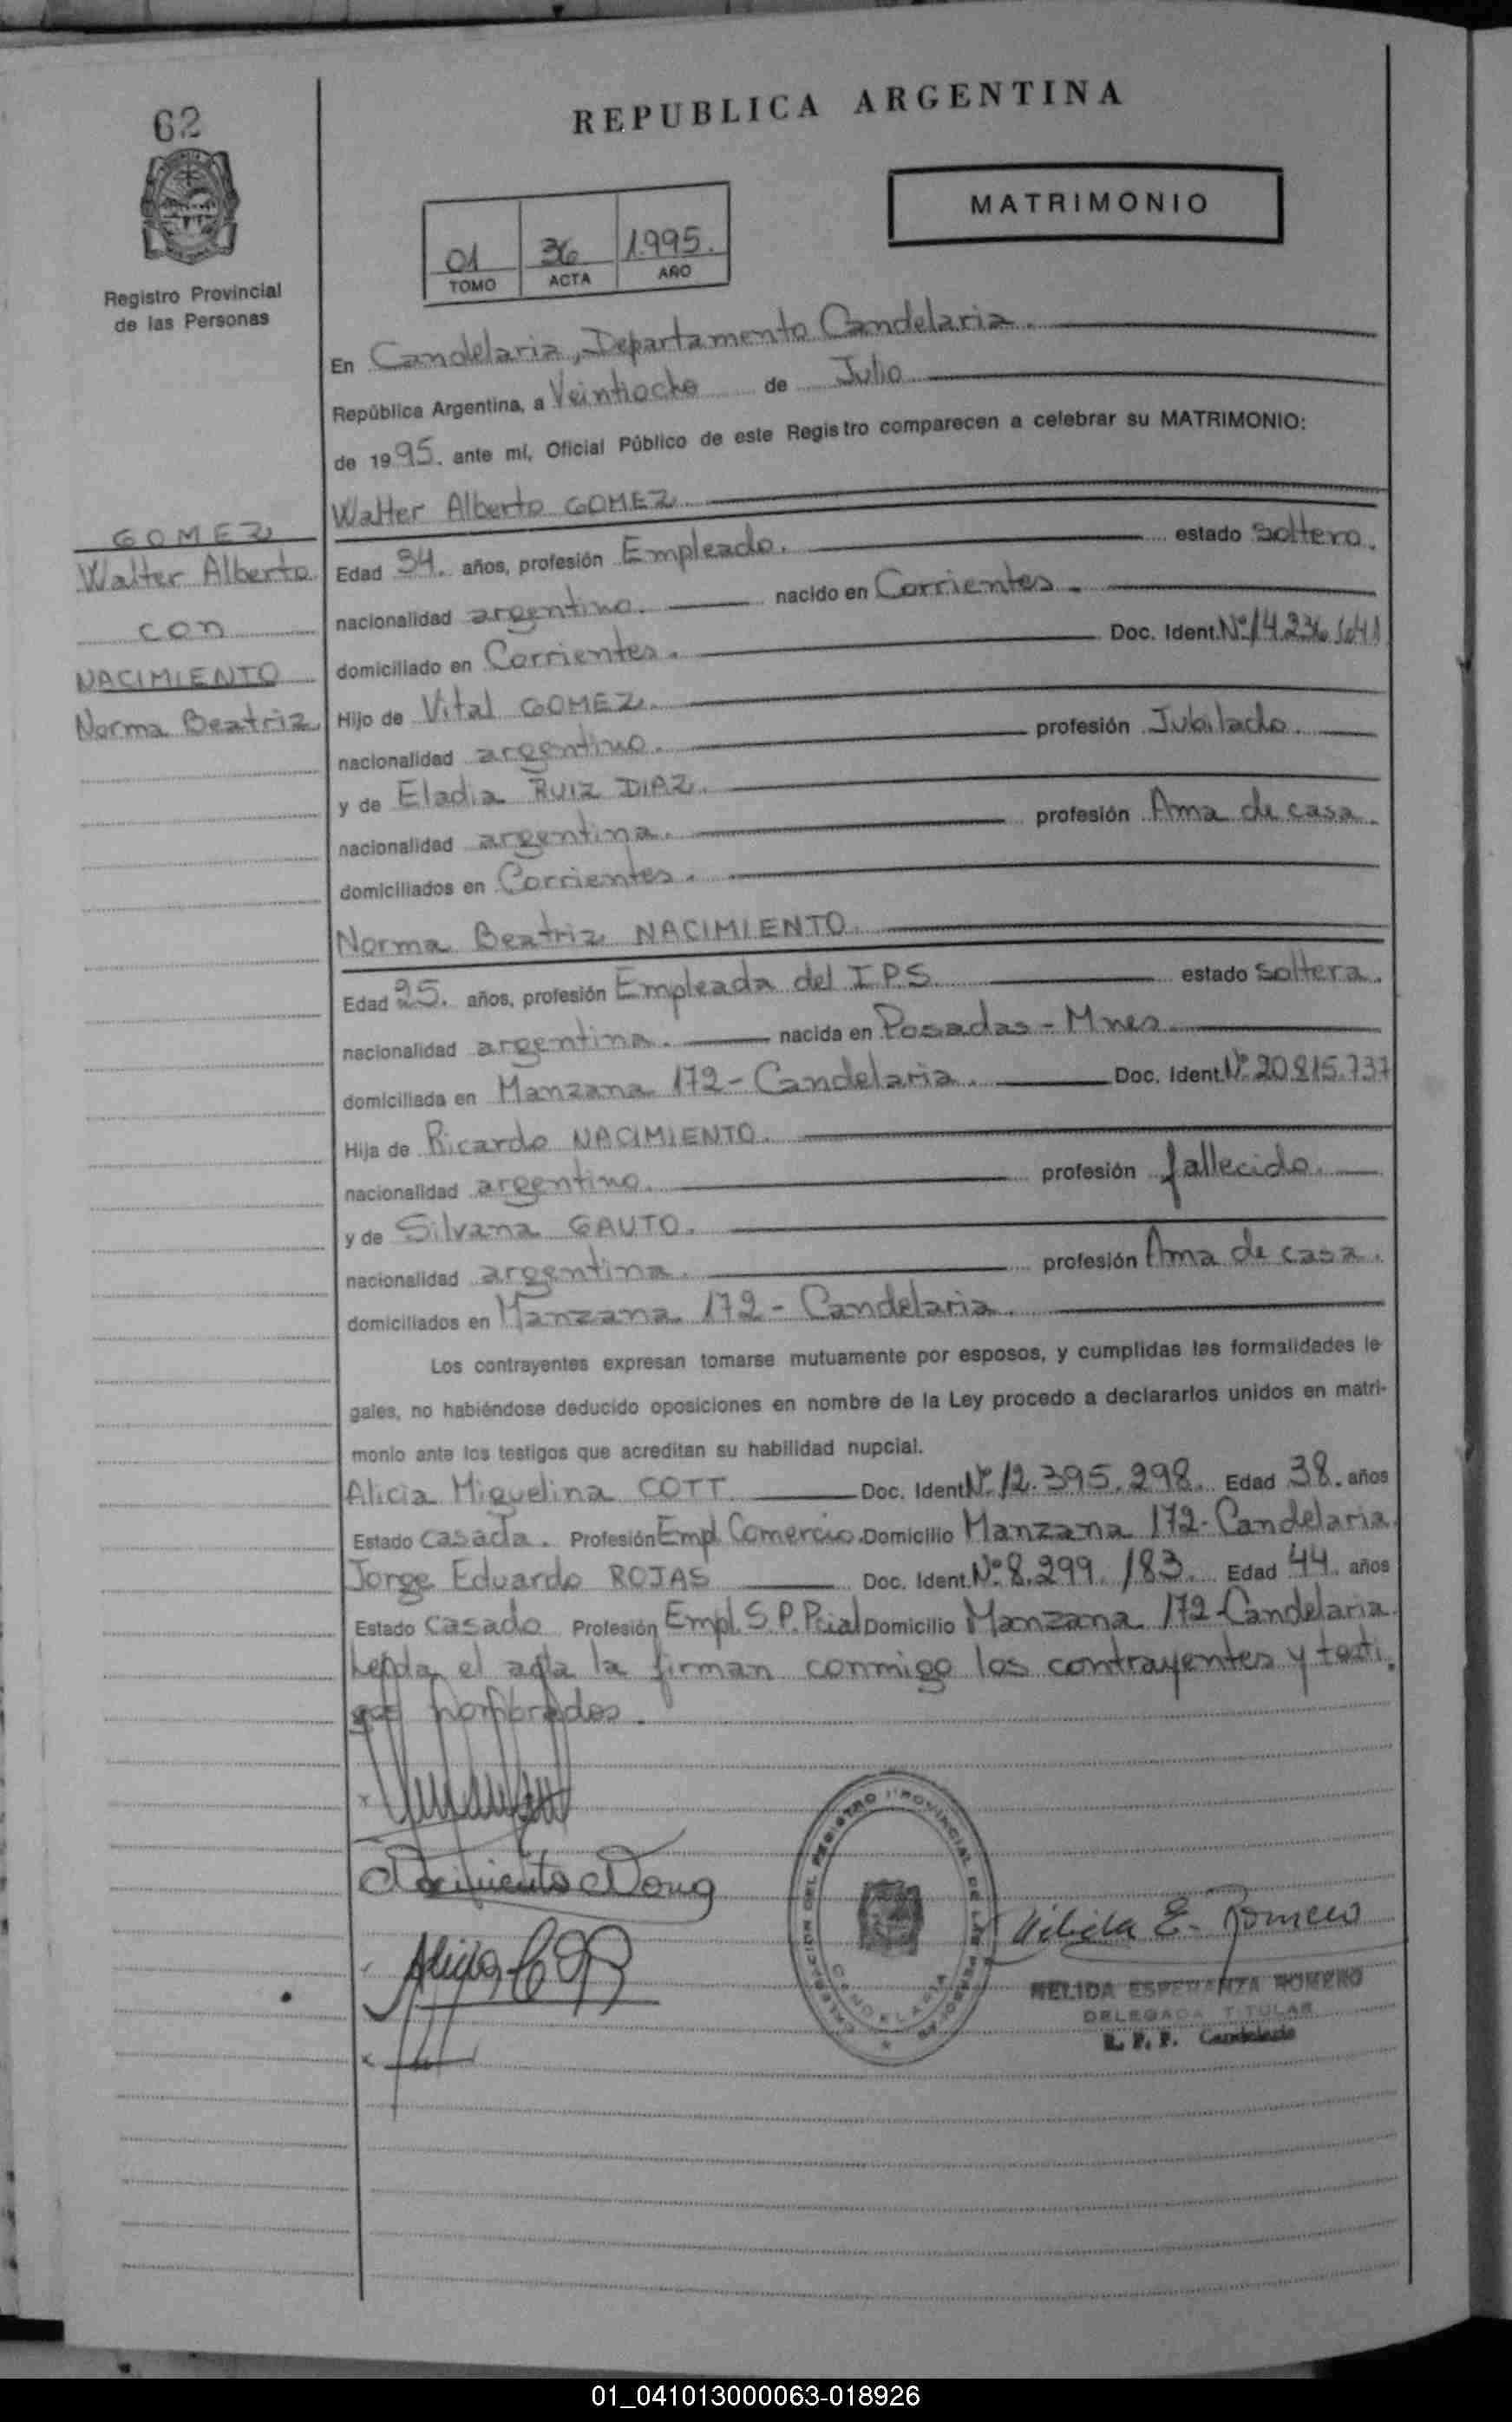 62
REPUBLICA ARGENTINA
MATRIMONIO
01 36 1.995.
TOMO ACTA AÑO
Registro Provincial
de las Personas
En Candelaria, Departamento Candelaria.
República Argentina, a Veintiocho de Julio
de 1995. ante mí, Oficial Público de este Registro comparecen a celebrar su MATRIMONIO:
GOMEZ
Walter Alberto
con
NACIMIENTO
Norma Beatriz
Walter Alberto GOMEZ
Edad 34. años, profesión Empleado. estado soltero.
nacionalidad argentino. nacido en Corrientes.
domiciliado en Corrientes. Doc. Ident. Nº
Hijo de Vital GOMEZ.
nacionalidad argentino. profesión Jubilado.
y de Eladia RUIZ DIAZ.
nacionalidad argentina. profesión Ama de casa.
domiciliados en Corrientes.
Norma Beatriz NACIMIENTO.
Edad 25. años, profesión Empleada del I.P.S. estado soltera.
nacionalidad argentina. nacida en Posadas - Mnes.
domiciliada en Manzana 172 - Candelaria. Doc. Ident. Nº 20.815.737
Hija de Ricardo NACIMIENTO.
nacionalidad argentino. profesión fallecido.
y de Silvana GAUTO.
nacionalidad argentina. profesión Ama de casa.
domiciliados en Manzana 172 - Candelaria.
Los contrayentes expresan tomarse mutuamente por esposos, y cumplidas las formalidades le-
gales, no habiéndose deducido oposiciones en nombre de la Ley procedo a declararlos unidos en matri-
monio ante los testigos que acreditan su habilidad nupcial.
Alicia Miguelina COTT Doc. Ident. Nº 12.395.298. Edad 38. años
Estado casada. Profesión Empl Comercio. Domicilio Manzana 172 - Candelaria.
Jorge Eduardo ROJAS Doc. Ident. Nº 8.299.183. Edad 44. años
Estado casado Profesión Empl. S.P.Pcial Domicilio Manzana 172 - Candelaria.
Leída el acta la firman conmigo los contrayentes y testi
gos nombrados.
Nacimiento Norma
REGISTRO PROVINCIAL DE LAS PERSONAS
CANDELARIA
Nelida E. Romero
NELIDA ESPERANZA ROMERO
DELEGADA TITULAR
R. P. P. Candelaria
01_041013000063-018926